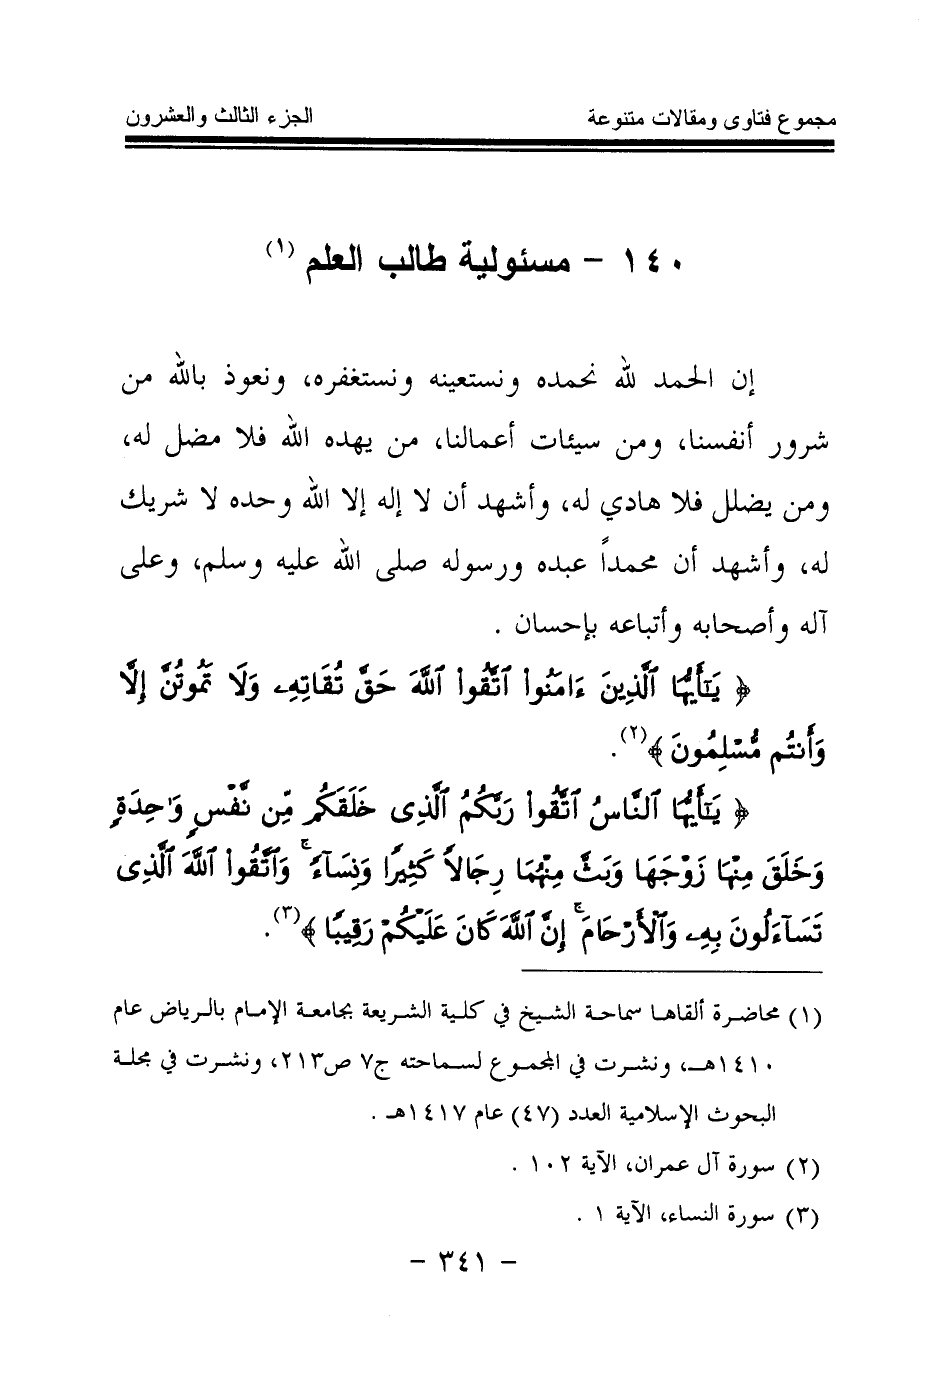 مجموع فتاوى ومقالات متنوعة الجزء الثالث والعشرون
١٤٠ - مسئولية طالب العلم (١)
إن الحمد لله نحمده ونستعينه ونستغفره، ونعوذ بالله من
شرور أنفسنا، ومن سيئات أعمالنا، من يهده الله فلا مضل له،
ومن يضلل فلا هادي له، وأشهد أن لا إله إلا الله وحده لا شريك
له، وأشهد أن محمداً عبده ورسوله صلى الله عليه وسلم، وعلى
آله وأصحابه وأتباعه بإحسان .
﴿ يَٰٓأَيُّهَا ٱلَّذِينَ ءَامَنُوا۟ ٱتَّقُوا۟ ٱللَّهَ حَقَّ تُقَاتِهِۦ وَلَا تَمُوتُنَّ إِلَّا
وَأَنتُم مُّسْلِمُونَ ﴾(٢).
﴿ يَٰٓأَيُّهَا ٱلنَّاسُ ٱتَّقُوا۟ رَبَّكُمُ ٱلَّذِى خَلَقَكُم مِّن نَّفْسٍ وَٰحِدَةٍ
وَخَلَقَ مِنْهَا زَوْجَهَا وَبَثَّ مِنْهُمَا رِجَالًا كَثِيرًا وَنِسَآءً ۚ وَٱتَّقُوا۟ ٱللَّهَ ٱلَّذِى
تَسَآءَلُونَ بِهِۦ وَٱلْأَرْحَامَ ۚ إِنَّ ٱللَّهَ كَانَ عَلَيْكُمْ رَقِيبًا ﴾(٣).
(١) محاضرة ألقاها سماحة الشيخ في كلية الشريعة بجامعة الإمام بالرياض عام
١٤١٠هـ، ونشرت في المجموع لسماحته ج٧ ص٢١٣، ونشرت في مجلة
البحوث الإسلامية العدد (٤٧) عام ١٤١٧هـ .
(٢) سورة آل عمران، الآية ١٠٢ .
(٣) سورة النساء، الآية ١ .
- ٣٤١ -